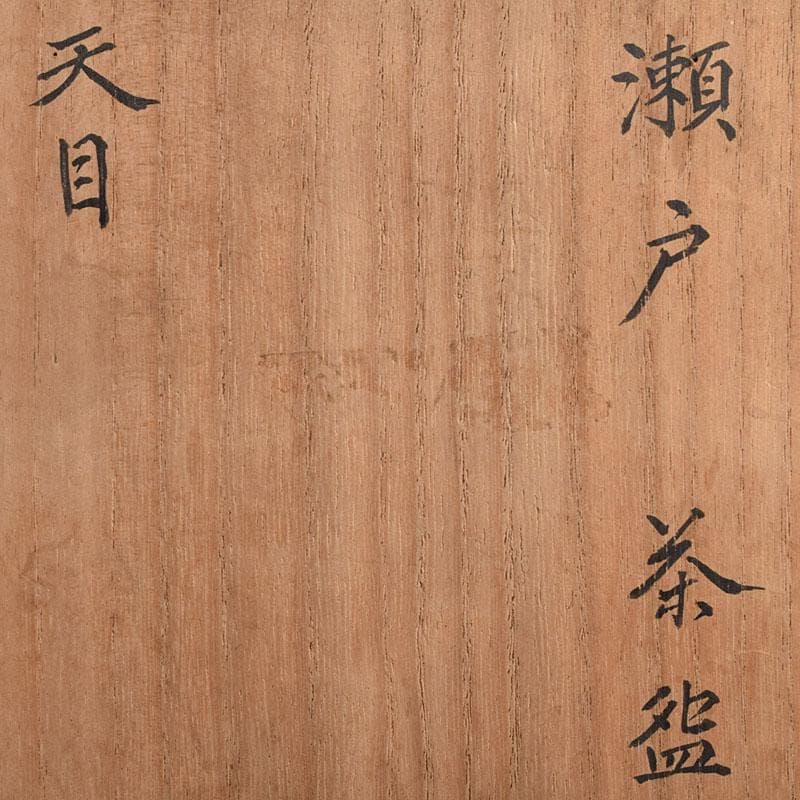 瀬戸 茶盌
天目